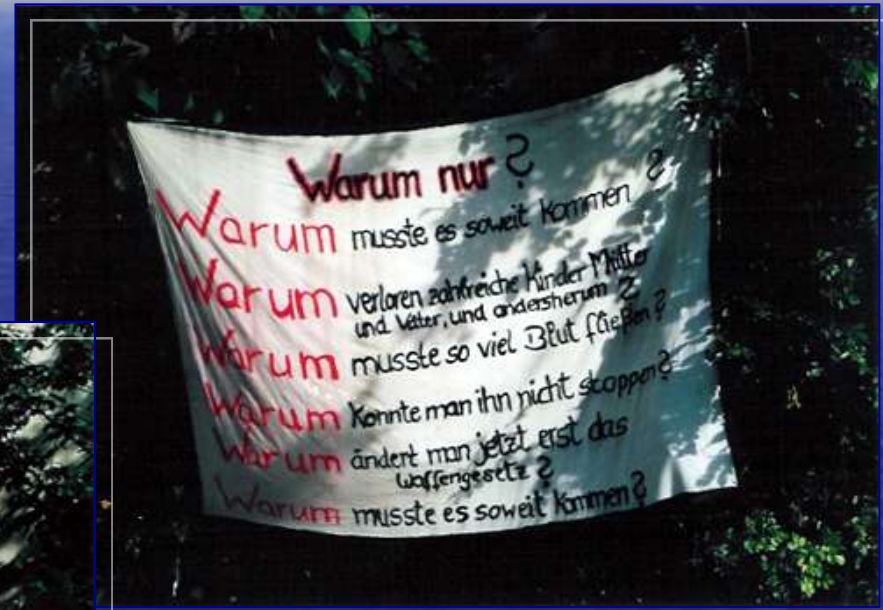 Warum nur?
Warum musste es soweit kommen?
Warum verloren zahlreiche Kinder Mütter
und Väter, und andersherum?
Warum musste so viel Blut fließen?
Warum konnte man ihn nicht stoppen?
Warum ändert man jetzt erst das
Waffengesetz?
Warum musste es soweit kommen?